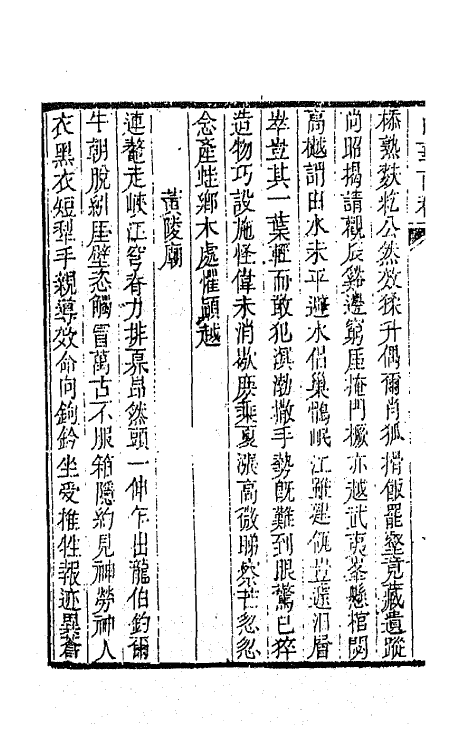 榛熟麩粒公然效猱升偶爾肖狐搰飯罷壑竟藏遺蹤
尚昭揭請觀辰谿邊窮厓掩門橛亦越武夷峯懸棺閟
高樾謂由水未平避水侶巢鶻岷江雖建瓴豈遽汩層
崒豈其一葉輕而敢犯溟渤撒手勢旣難到眼驚已猝
造物巧設施怪偉未消歇庚乘夏漲高微睇祭芒忽忽
念產蛙鄉木處懼顚越
黃陵廟
連鼇走峽江穹脊力排奡昂然頭一伸乍出龍伯釣爾
牛朝脫紖厓壁恣觸冒萬古不服箱隱約見神勞神人
衣黑衣短犁手親導效命向鉤鈐坐受推牲報迹異蒼